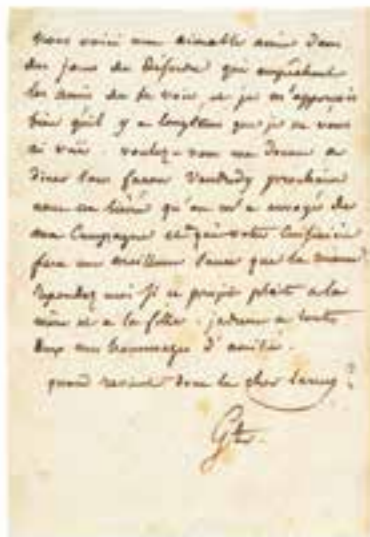 nous voici mon aimable amie dans
des jours de désordre qui empêchent
les amis de se voir, et je m'apperçois
bien qu'il y a longtems que je ne vous
ai vue. voulez-vous me donner a
diner sans façon Vendredy prochain
avec un lièvre qu'on m'a envoyé de
ma Campagne et que votre Cuisinière
fera une meilleure sauce que la mienne
repondez moi si ce projet plait a la
mère et a la fille. j'adresse a toutes
deux mes hommages d'amitié.
quand revient donc le cher